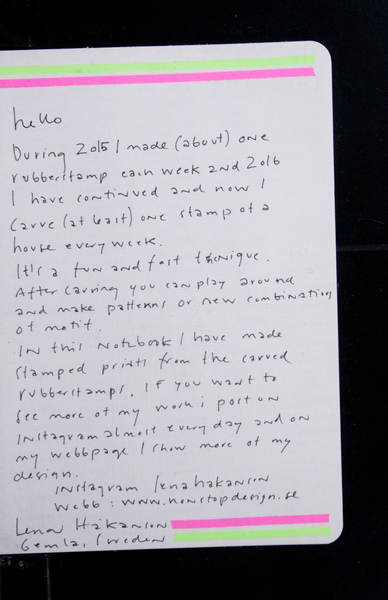 hello
During 2015 I made (about) one
rubberstamp each week and 2016
I have continued and now I
carve (at least) one stamp of a
house every week.
It's a fun and fast technique.
After carving you can play around
and make patterns or new combinations
of motif.
In this notebook I have made
stamped prints from the carved
rubberstamps. If you want to
see more of my work i post on
Instagram almost every day and on
my webbpage I show more of my
design.
Instagram lenahakanson
Webb: www.nonstopdesign.se
Lena Håkanson
Gemla, Sweden